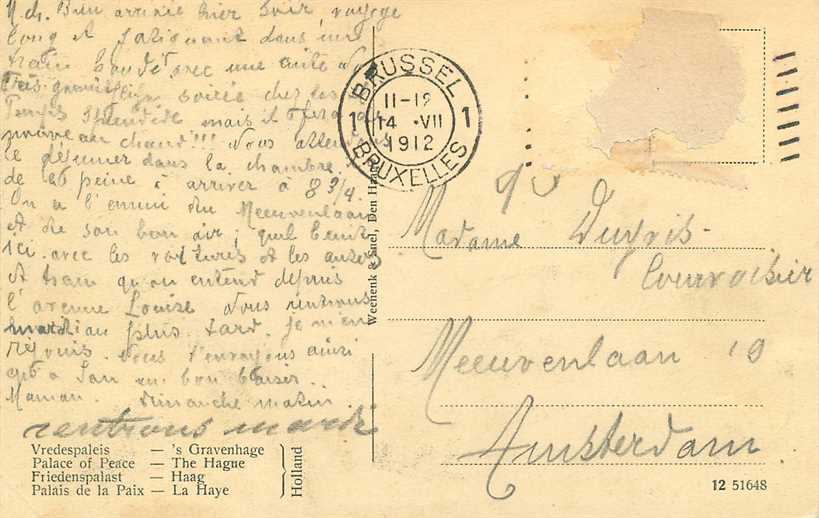 M. ch. Bien arrivée hier soir voyage
long et fatiguant dans un
train bondé avec une suite de
très soirée chez les
Temps splendide mais il fera
chaud!!! Nous attendons
le déjeuner dans la chambre.
de peine à arriver à 8 3/4.
On a l'ennui du Meeuvenlaan
et de son bon air; quel bruit
ici avec les voitures et les autos
et tram qu'on entend depuis
l'avenue Louise Nous rentrons
mardi au plus tard. Je m'en
réjouis. Nous t'envoyons ainsi
qu'à Jan un bon baiser.
Maman. Dimanche matin
rentrons mardi
Vredespaleis — 's Gravenhage
Palace of Peace — The Hague
Friedenspalast — Haag
Palais de la Paix — La Haye
Holland
Weenenk & Snel, Den Haag
BRUSSEL
11-12
1 14 VII 1
1912
BRUXELLES
Madame Duyvis-
Courvoisier
Meeuvenlaan 19
Amsterdam
12 51648